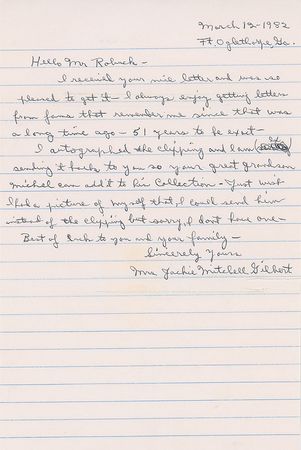 March 12-1982
Ft. Oglethorpe, Ga.
Hello Mr. Roback -
I received your nice letter and was so
pleased to get it - I always enjoy getting letters
from fans that remember me since that was
a long time ago - 51 years to be exact -
I autographed the clipping and I am
sending it back to you so your great grandson
Michel can add it to his collection - Just wish
I had a picture of myself that I could send him
instead of the clipping but sorry, I don't have one -
Best of luck to you and your family -
Sincerely Yours
Mrs. Jackie Mitchell Gilbert